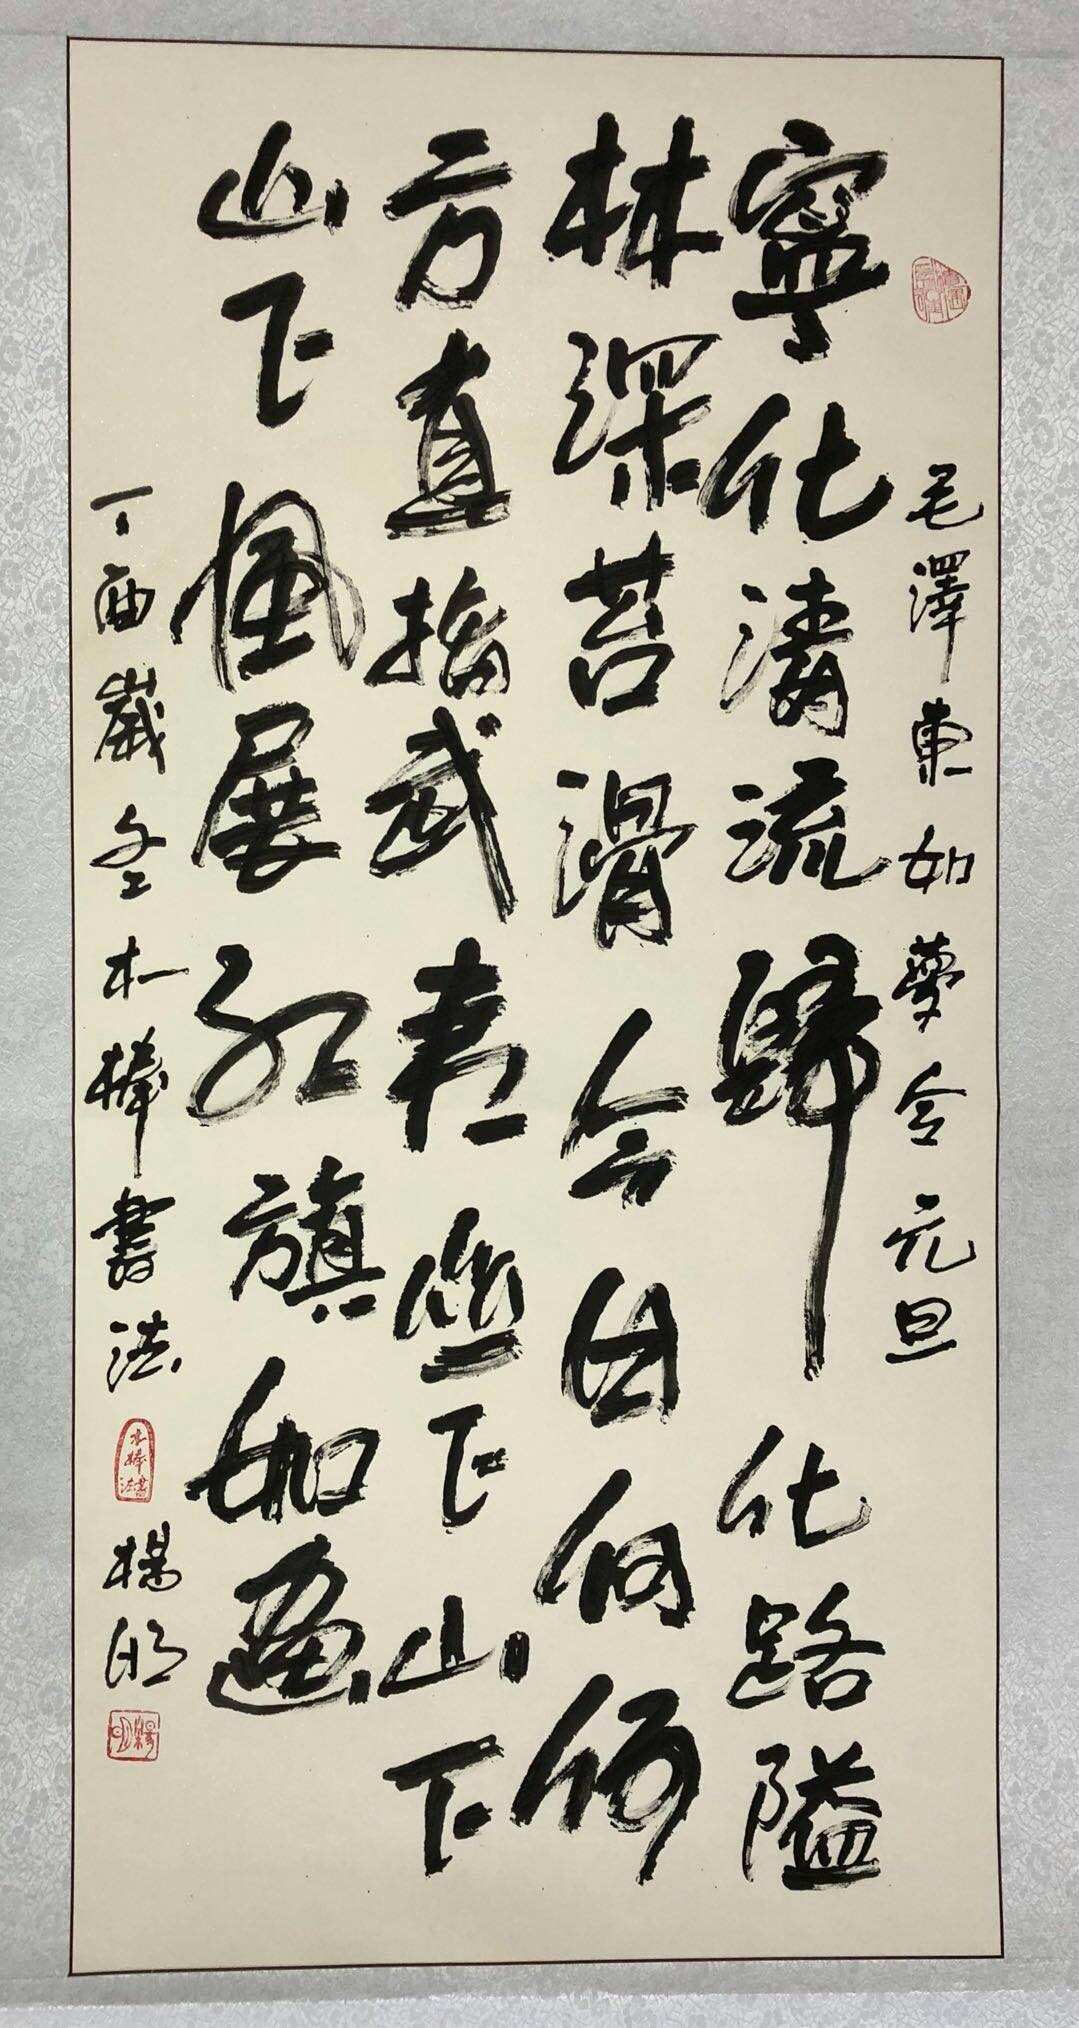 毛澤東如夢令元旦
寧化清流歸化路隘
林深苔滑今日向何
方直指武夷山下山下
山下風展紅旗如畫
丁酉歲冬木棒書法
木棒書法
楊明
楊明